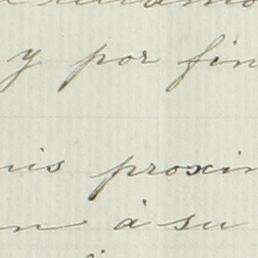 y por fin
nis proxim
n à su